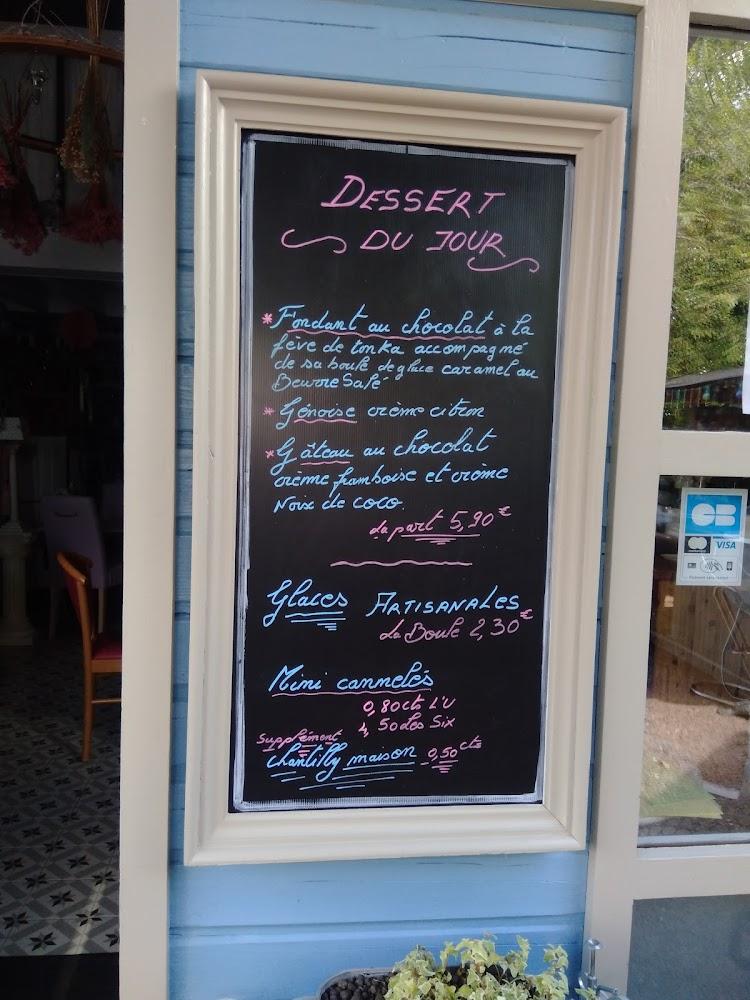 DESSERT
DU JOUR
* Fondant au chocolat à la
fève de tonka accompagné
de sa boule de glace caramel au
Beurre Salé
* Génoise crème citron
* Gâteau au chocolat
crème framboise et crème
Noix de coco.
La part 5,90€
Glaces ARTISANALES
La Boule 2,30€
Mini cannelés
0,80cts L'U
4,50 Les Six
Supplément
Chantilly maison 0,50cts
CB
VISA